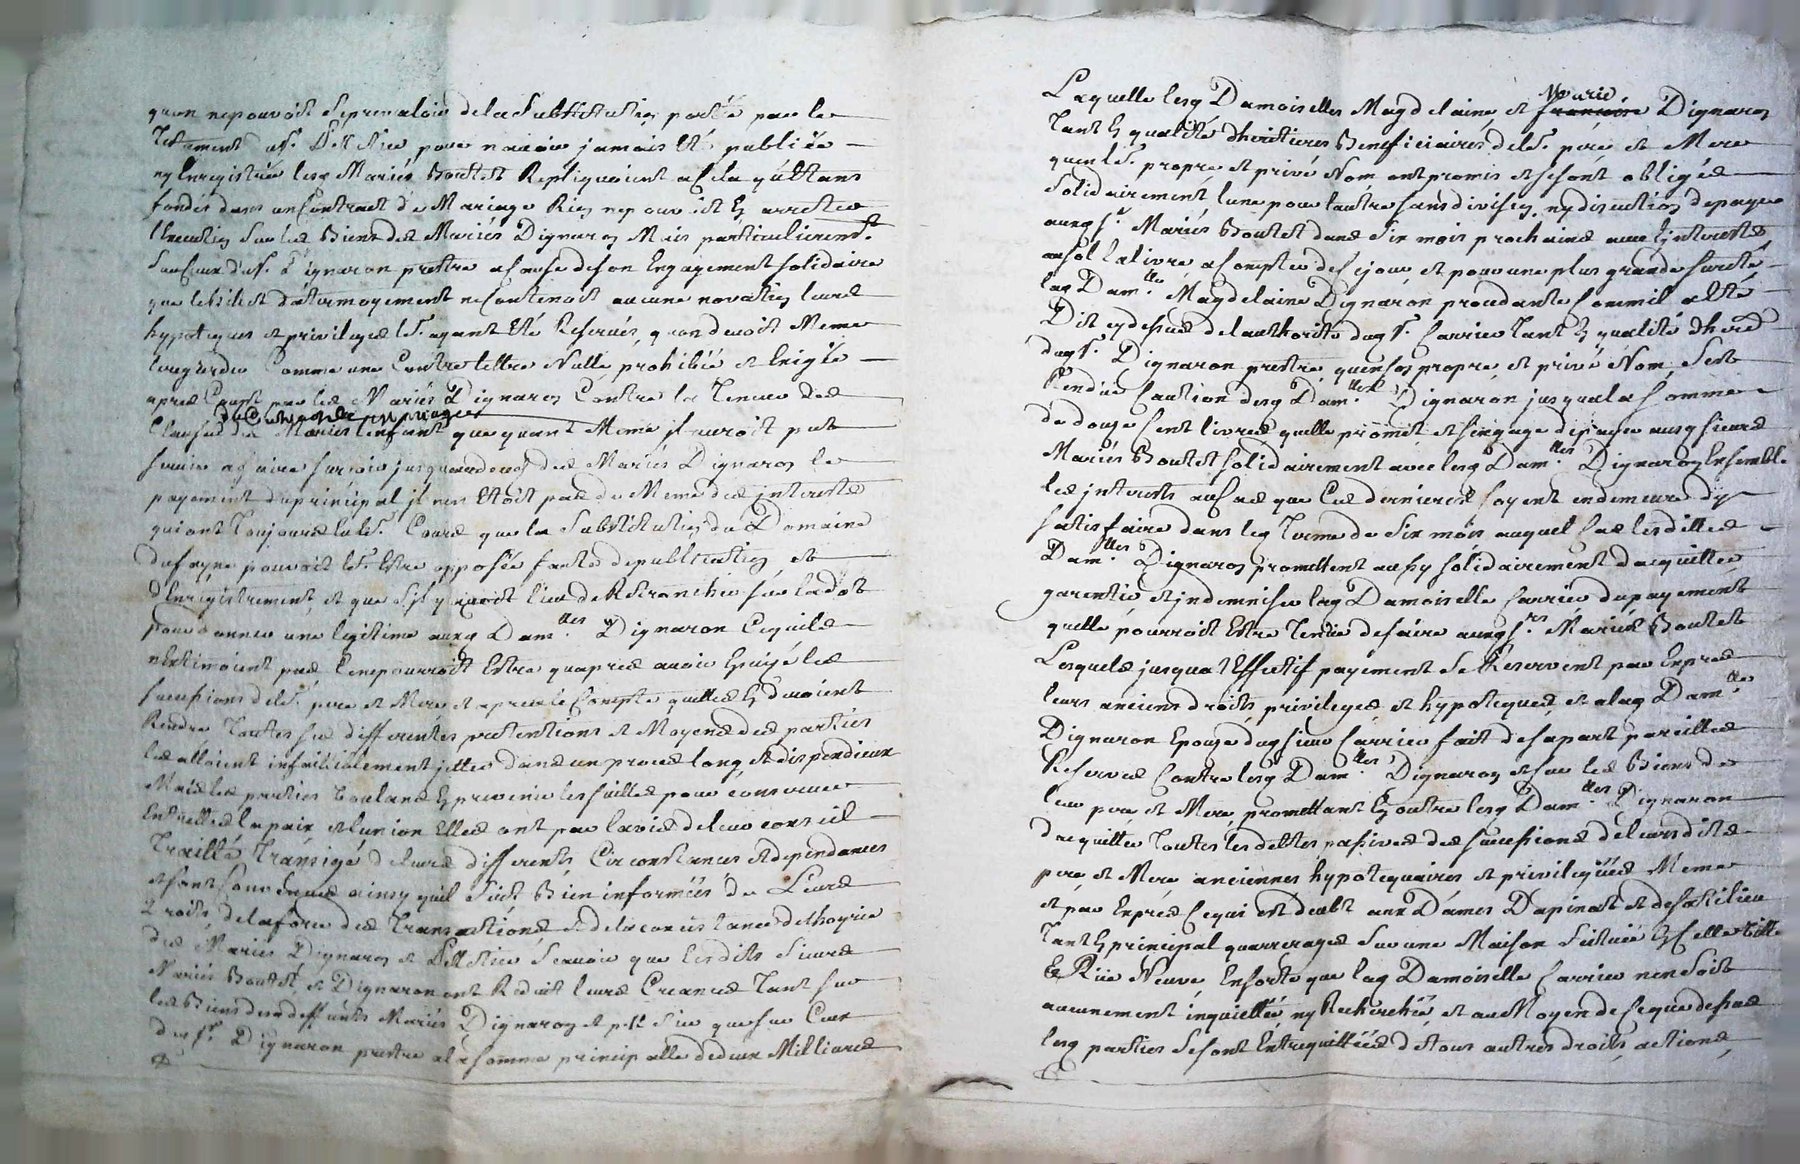 quon nepouvoit seprevaloir dela Substitution portée par le
Testament du Sr. Pelletier pour navoir jamais Eté publiée
ny Enregistrée lesd Mariés Boutet Repliquoient a cela quEttans
fondés dans un Contract de Mariage Rien nepouvoit En arretter
lExecution Sur les Biens des Mariés Dignaron Mais particulierement
Sur Ceux dud Sr. Dignaron prestre a Cause de son Engagement solidaire
que lebillet datermoyement ne Contenoit aucune novation leurs
hypoteques et privileges led. ayant Eté Reservés, quon devoit Meme
Regarder Comme une Contre lettre Nulle prohibée et Exigée
apres Coup par les Mariés Dignaron Contre la Teneur des
Clauses du Contract de Mariage que quant Meme il auroit peut
payement du principal il nen Etoit pas de Meme des interests
qui ont Toujours Cours que la Substitution du Domaine
pouvoit Estre opposée faute depublication et
dEnregistrement, et que Sil y avoit lieu de Retrancher Sur la dot
pour donner une legitime auxd Damlles. Dignaron Cequils
nEstimoient pas Cenepourroit Estre quapres avoir Epuisé les
successions desd. pere et Mere et apres le Compte quelles En devoient
Rendre Toutes ses differentes pretentions et Moyens des parties
les alloient infailliblement jetter dans un proces long et dispendieux
Mais les parties Voulans En prevenir les suittes pour conserver
Entrelles la paix et lunion Elles ont par lavis de leur conseil
Traitté Transigé de leurs differents Circonstances et dependances
et sont Convenues ainsy quil Suit Bien informées de Leurs
Droits de la force des Transactions et de la consistance de lhoyrie
des Mariés Dignaron et Pelletier Scavoir que Lesdits Sieurs
Mariés Boutet et Dignaron ont Reduit leurs Creances Tant sur
les Biens desd deffunts Mariés Dignaron et pelletier que sur Ceux
dud Sr. Dignaron prestre a la somme principalle de deux Mil livres
Laquelle lesd Damoiselles Magdelaine et Marie Dignaron
Tant En qualité dheritieres Beneficiaires desd. pere et Mere
quen led. propre et privé Nom ont promis et se sont obligées
Solidairement lune pour lautre sans division ny discution de payer
auxd Srs. Mariés Boutet dans Six mois prochains avec Interests
au sol la livre a Compter de ce jour et pour une plus grande sureté
lad Damlle. Magdelaine Dignaron procedante Comme il a Eté
Dit cy dessus de lauthorité dud Sr. Carrier Tant En qualité dherer
dud Sr. Dignaron prestre quen son propre et privé Nom Sest
Rendue Caution desd Damlles. Dignaron jusqua la somme
de douze Cent livres quelle promet et sengage de payer auxd sieurs
Mariés Boutet solidairement avec lesd Damlles. Dignaron Ensemble
les interests au Cas que Ces dernieres soyent en demeure dy
satisfaire dans led Terme de Six mois auquel Cas lesdittes
Damlles. Dignaron promettent aussy solidairement dacquitter
garentir et indemniser lad Damoiselle Carrier du payement
quelle pourroit Estre Tenue de faire auxd Srs. Mariés Boutet
Lesquels jusqua lEffectif payement se Reservent par Expres
leurs anciens droits privileges et hypoteques et a lad Damlle.
Dignaron Epouse dud sieur Carrier fait de sa part pareilles
Reserves Contre lesd Damlles. Dignaron et sur les Biens de
leur pere et Mere promettant En outre lesd Damlles. Dignaron
dacquitter Toutes les dettes passives des successions de leursdits
pere et Mere anciennes hypotequaires et privilegiées Meme
et par Exprés Cequi est deubt aux Dames Dapinat et de Satilieu
Tant En principal quarrerages Sur une Maison Scituée En Cette Ville
Rue Neuve Ensorte que lad Damoiselle Carrier nen Soit
aucunement inquiettée ny Recherchée et au Moyen de Ce que dessus
lesd parties Se sont Entrequittées de tous autres droits, actions,